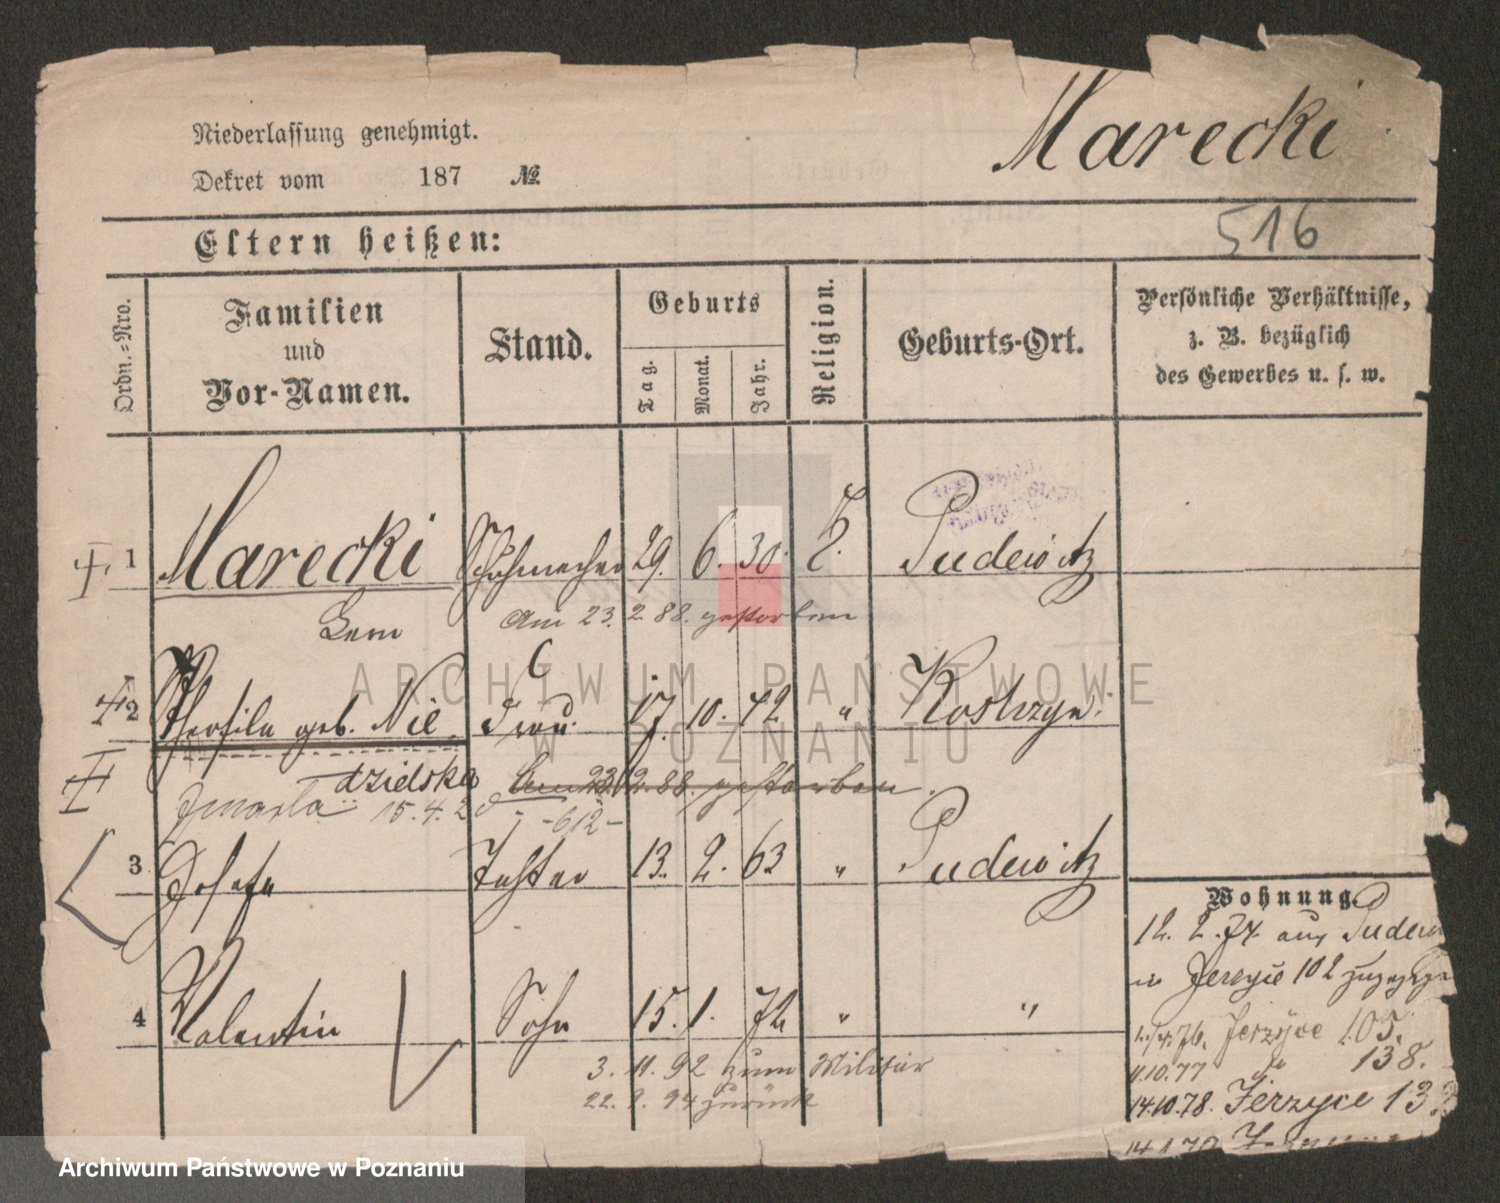 Marecki
Niederlassung genehmigt.
Dekret vom 187 №
516
Eltern heißen:
Ordn.-Nro.
Familien
und
Vor-Namen.
Stand.
Geburts
Tag.
Monat.
Jahr.
Religion.
Geburts-Ort.
Persönliche Verhältnisse,
z. B. bezüglich
des Gewerbes u. s. w.
1 Marecki Schuhmacher 29. 6. 30. Pudewitz
Am 23. 2 88. gestorben
2 geb. Nie Frau 17. 10. 42 " Kostrzyn.
dzielska gestorben.
Zmarła 15.4.2
-612-
3 Josefa Tochter 13. 2. 63 " Pudewitz
Wohnung
12. 2. 74. aus Pudew
in Jerzyce 102
4 Valentin Sohn 15. 1. 72 " "
76. Jerzyce 105.
3. 11. 92 zum Militär
11.10.77 138.
22. 9. 94 zurück
14.10.78. Jerzyce 13
ARCHIWUM PAŃSTWOWE
W POZNANIU
Archiwum Państwowe w Poznaniu